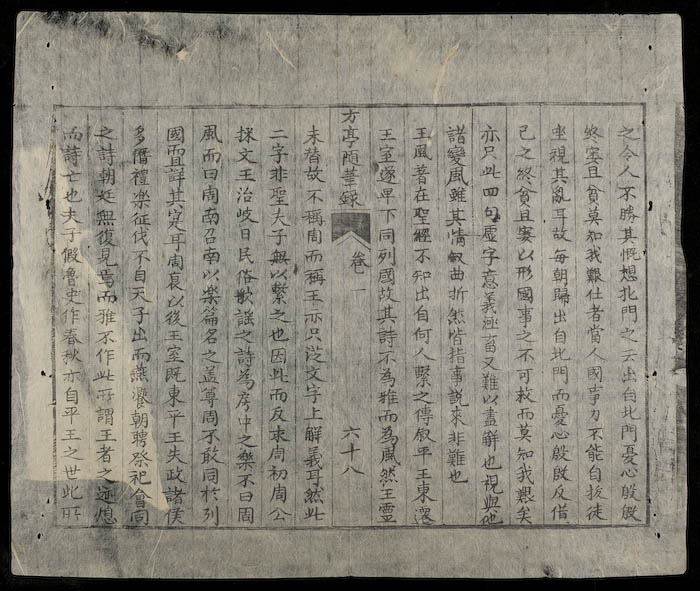 之令人不勝其慨想北門之云出自北門憂心殷殷
終窶且貧莫知我艱仕者當人國事力不能自拔徒
坐視其亂耳故每朝歸出自北門而憂心殷殷反借
己之終貧且窶以形國事之不可救而莫知我艱矣
亦只此四句虛字意義極畜又難以盡解也視與他
諸變風雖其情叙曲折然皆指事說來非難也
王風著在聖經不知出自何人繫之傳叙平王東還
王室遂卑下同列國故其詩不為雅而為風然王靈
方亭隨筆錄 卷一 六十八
未替故不稱周而稱王亦只從文字上解義耳然此
二字非聖夫子無以繫之也因此而反求周初周公
採文王治岐日民俗歌謠之詩為房中之樂不曰周
風而曰周南召南以樂篇名之盖尊周不敢同於列
國而且詳其定耳周衰以後王室既東平王失政諸侯
多僭禮樂征伐不自天子出而燕饗朝聘祭祀會同
之詩朝廷無復見焉而雅不作此所謂王者之迹熄
而詩亡也夫子假魯史作春秋亦自平王之世此所